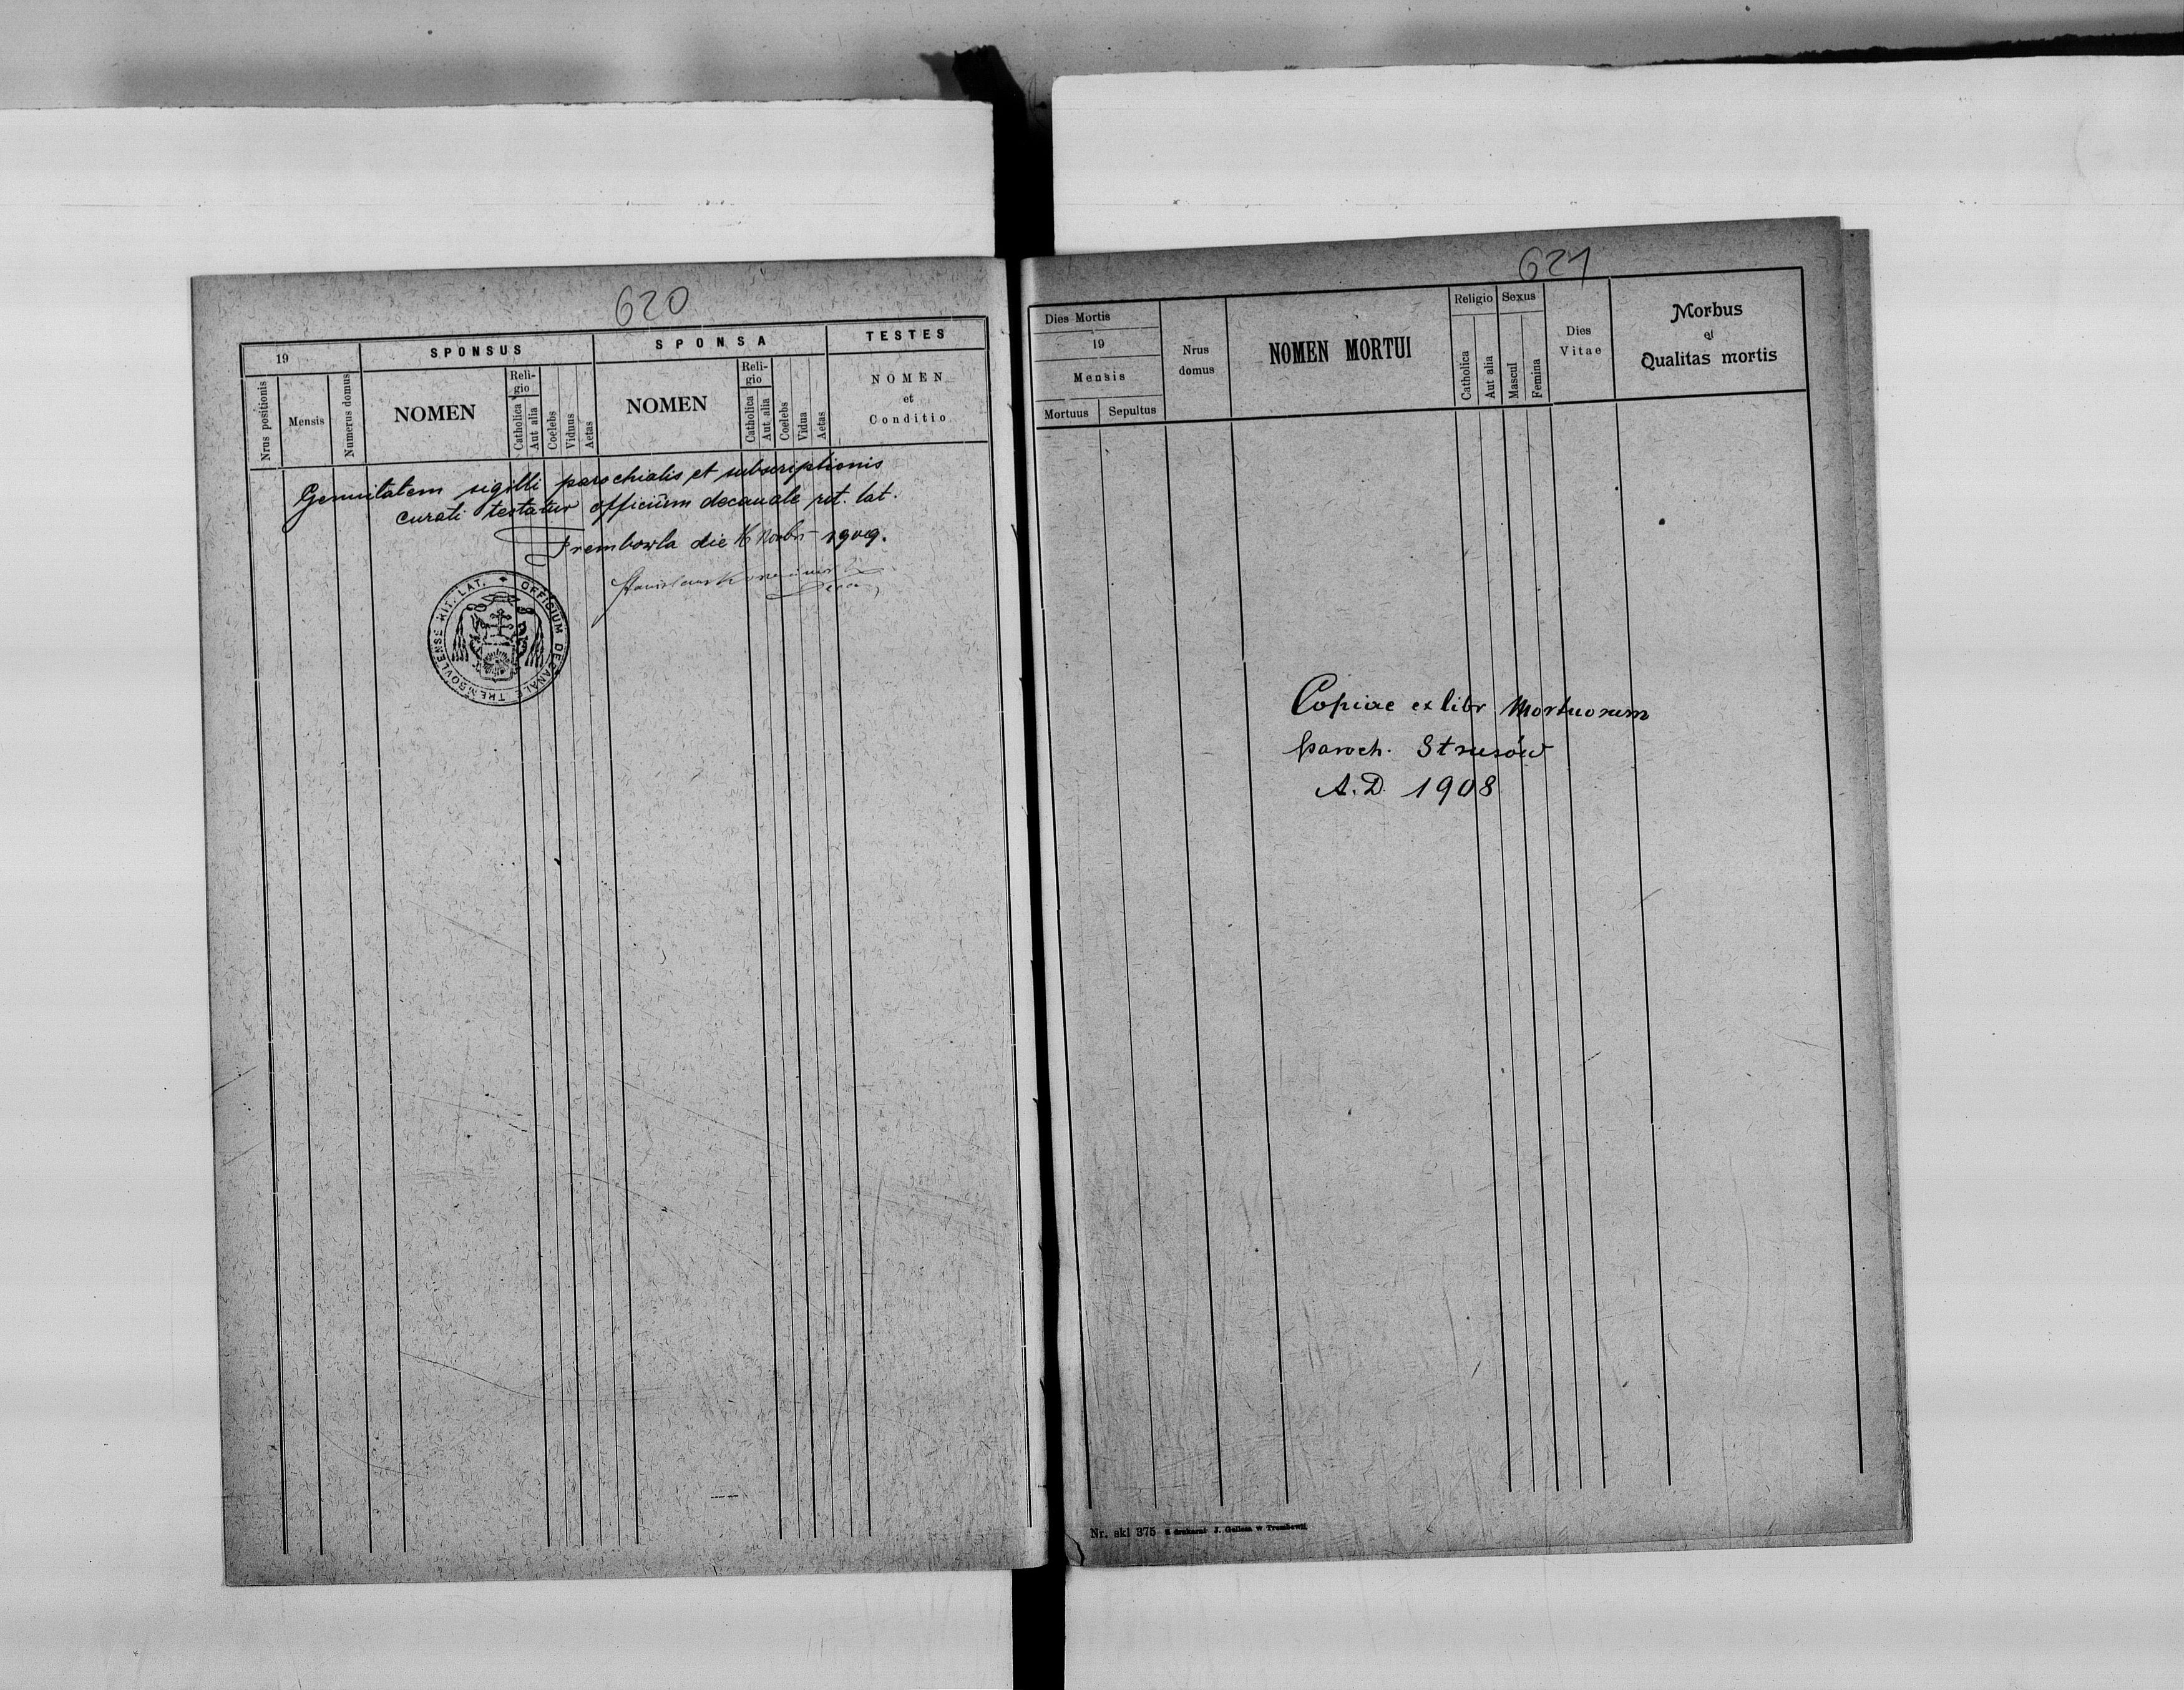 620
19
SPONSUS
SPONSA
TESTES
Nrus positionis
Mensis
Numerus domus
NOMEN
Reli-
gio
Catholica
Aut alia
Coelebs
Viduus
Aetas
NOMEN
Reli-
gio
Catholica
Aut alia
Coelebs
Vidua
Aetas
NOMEN
et
Conditio
Genuitatem sigilli parochialis et subscriptionis
curati testatur officium decanale rit. lat.
Trembowla die 1909.
Stanislaus
OFFICIUM DECANALE TREMBOVLENSE RIT. LAT.
621
Dies Mortis
19
Mensis
Mortuus
Sepultus
Nrus
domus
NOMEN MORTUI
Religio
Catholica
Aut alia
Sexus
Mascul
Femina
Dies
Vitae
Morbus
et
Qualitas mortis
Copiae ex libr Mortuorum
paroch. Strusów
A.D. 1908
Nr. skl 375 Z drukarni J. Gellesa w Trembowli